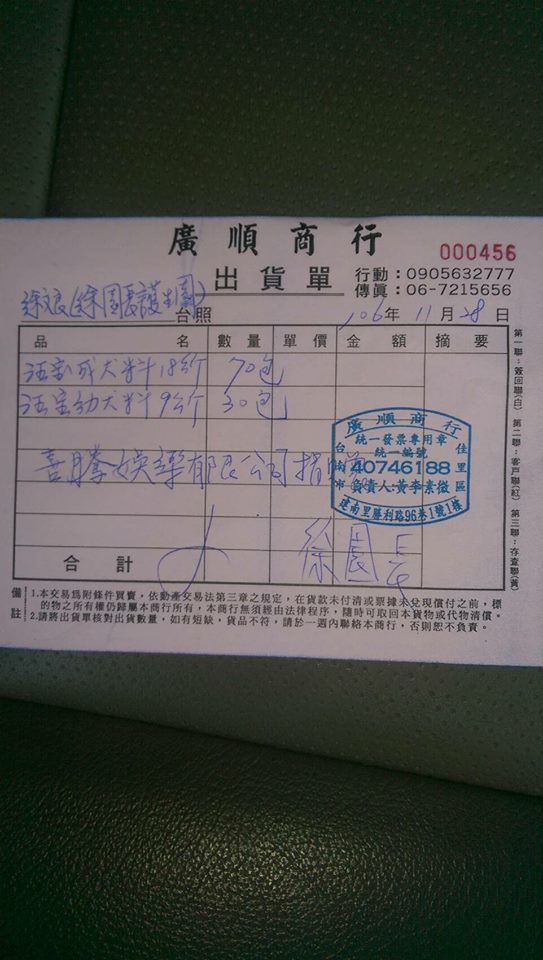 廣順商行
000456
出貨單
行動：0905632777
傳真：06-7215656
徐文良(徐園長護生園)
台照
106年 11月 28日
品名 數量 單價 金額 摘要
活寶成犬料18公斤 70包
活寶幼犬料9公斤 30包
喜騰娛樂有限公司捐贈
廣順商行
統一發票專用章
台南市
統一編號
40746188
佳里區
負責人:黃李素微
建南里勝利路96巷1號1樓
合計
徐園長
備註
1.本交易為附條件買賣，依動產交易法第三章之規定，在貨款未付清或票據未兌現償付之前，標
的物之所有權仍歸屬本商行所有，本商行無須經由法律程序，隨時可取回本貨物或代物清償。
2.請將出貨單核對出貨數量，如有短缺，貨品不符，請於一週內聯絡本商行，否則恕不負責。
第一聯：簽回聯(白) 第二聯：客戶聯(紅) 第三聯：存查聯(黃)